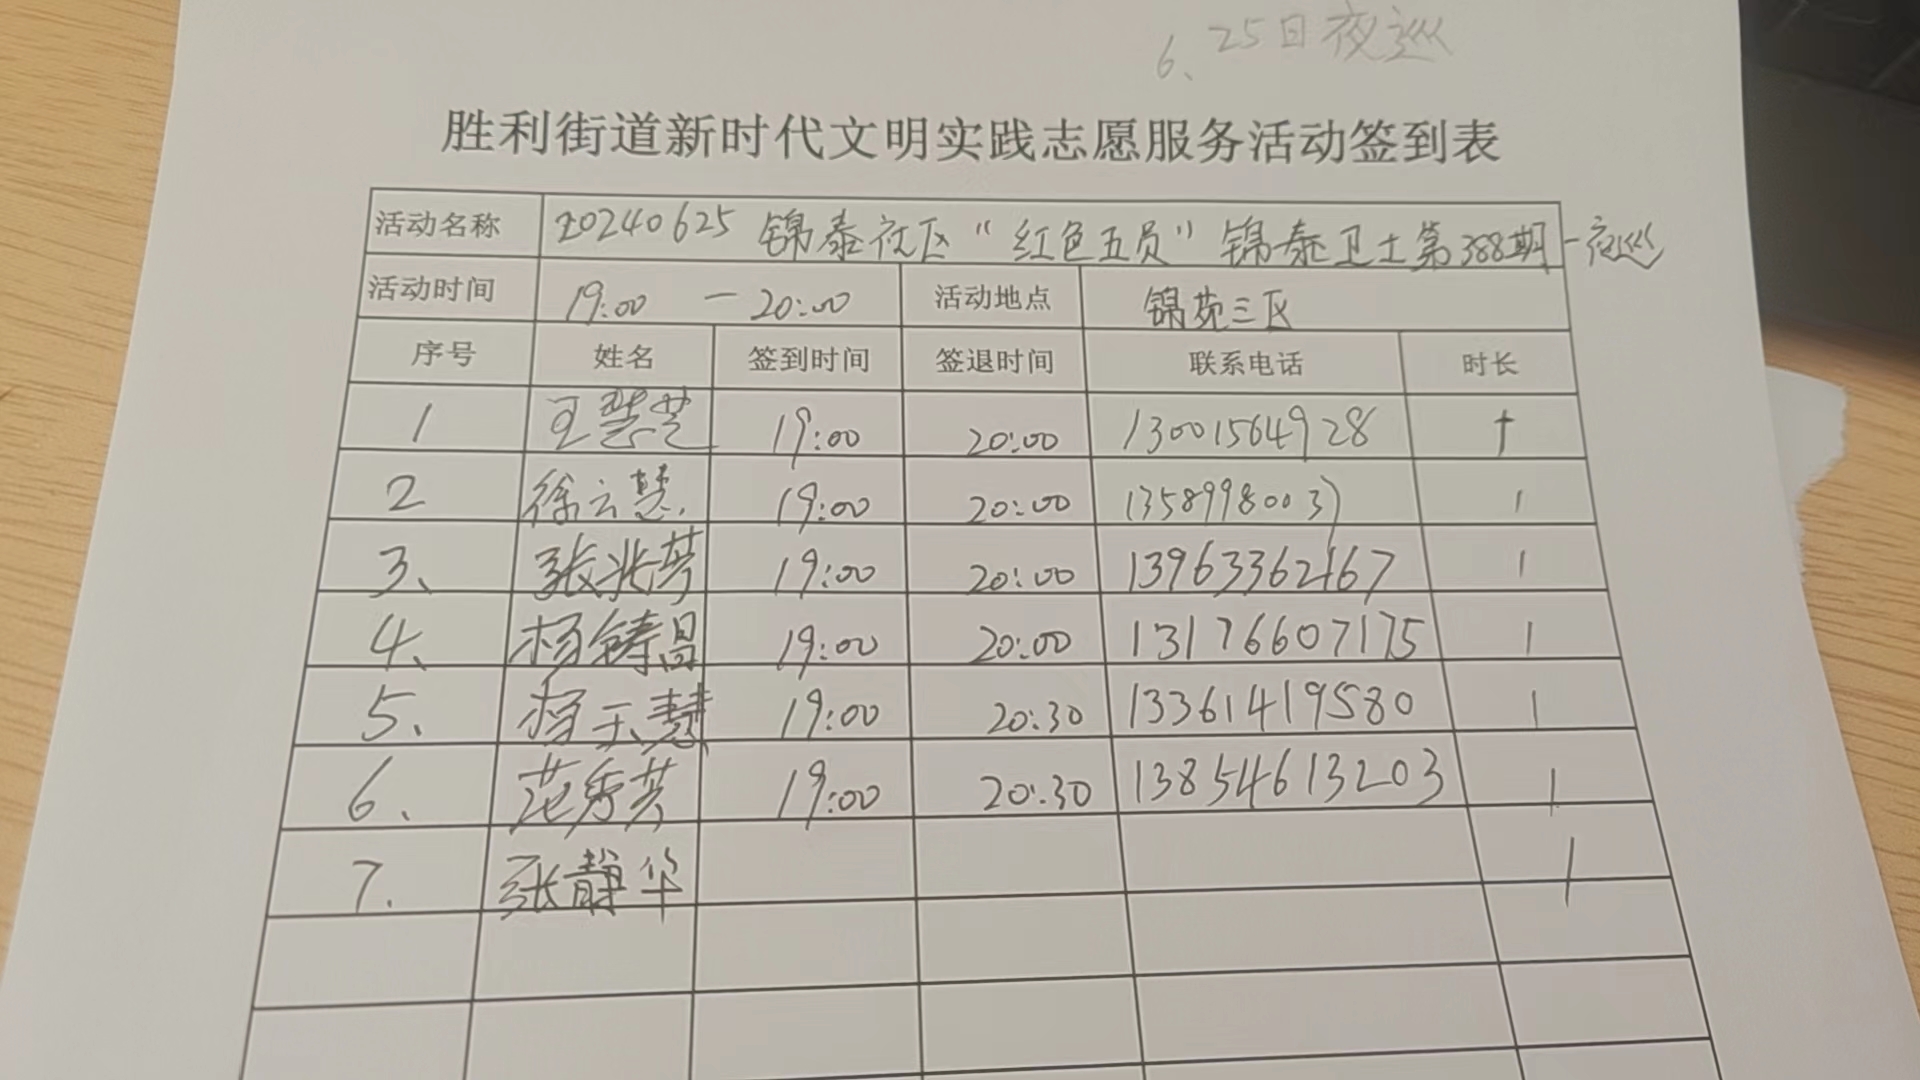 6、25日夜巡
胜利街道新时代文明实践志愿服务活动签到表
活动名称 20240625 锦泰社区“红色五员”锦泰卫士第388期-夜巡
活动时间 19:00 — 20:00 活动地点 锦苑三区
序号 姓名 签到时间 签退时间 联系电话 时长
1 王慧芝 19:00 20:00 13001564928 1
2 徐云慧 19:00 20:00 13589980037 1
3、 张兆芬 19:00 20:00 13963362167 1
4、 杨铸昌 19:00 20:00 13176607175 1
5、 杨玉慧 19:00 20:30 13361419580 1
6、 范秀芳 19:00 20:30 13854613203 1
7. 张静华 1